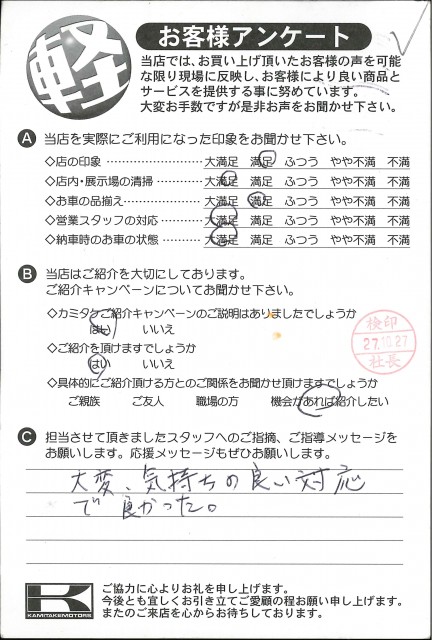 軽
お客様アンケート
当店では、お買い上げ頂いたお客様の声を可能
な限り現場に反映し、お客様により良い商品と
サービスを提供する事に努めています。
大変お手数ですが是非お声をお聞かせ下さい。
A 当店を実際にご利用になった印象をお聞かせ下さい。
◇店の印象 ……………………… 大満足 満足 ふつう やや不満 不満
◇店内・展示場の清掃……………… 大満足 満足 ふつう やや不満 不満
◇お車の品揃え…………………… 大満足 満足 ふつう やや不満 不満
◇営業スタッフの対応 …………… 大満足 満足 ふつう やや不満 不満
◇納車時のお車の状態 …………… 大満足 満足 ふつう やや不満 不満
B 当店はご紹介を大切にしてあります。
ご紹介キャンペーンについてお聞かせ下さい。
◇カミタケご紹介キャンペーンのご説明はありましたでしょうか
はい いいえ
◇ご紹介を頂けますでしょうか
はい いいえ
◇具体的にご紹介頂ける方とのご関係をお聞かせ頂けますでしょうか
ご親族 ご友人 職場の方 機会があれば紹介したい
検印
27.10.27
社長
C 担当させて頂きましたスタッフへのご指摘、ご指導メッセージを
お願いします。応援メッセージもぜひお願いします。
大変、気持ちの良い対応
で良かった。
K
KAMITAKEMOTORS
ご協力に心よりお礼を申し上げます。
今後とも宜しくお引き立てご愛顧の程お願い申し上げます。
またのご来店を心からお待ちしております。